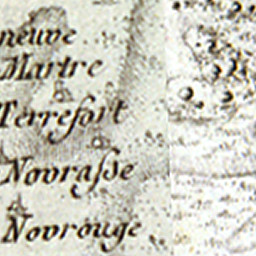 neuve
Martre
Terrefort
Novraſse
Novrouge